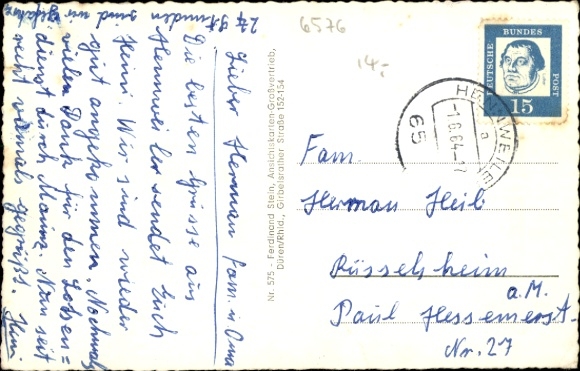 Lieber Herman fam. u Oma
Die besten Grüsse aus
Hennweiler sendet Euch
Heini. Wir sind wieder
gut angekommen. Nochmals
vielen Dank für den Lotsen=
dienst durch Mainz. Nun seit
recht vielmals gegrüßt. Heini
2 7 Stunden sind wir gefahren
Nr. 575 - Ferdinand Stein, Ansichtskarten-Großvertrieb,
Düren/Rhld., Girbelsrather Straße 152-154
6576
14,-
DEUTSCHE BUNDESPOST
15
HENNWEILER
a
-1.6.64-1
65
Fam.
Herman Heib
Rüsselsheim
a. M.
Paul Hessemerst.
Nr. 27